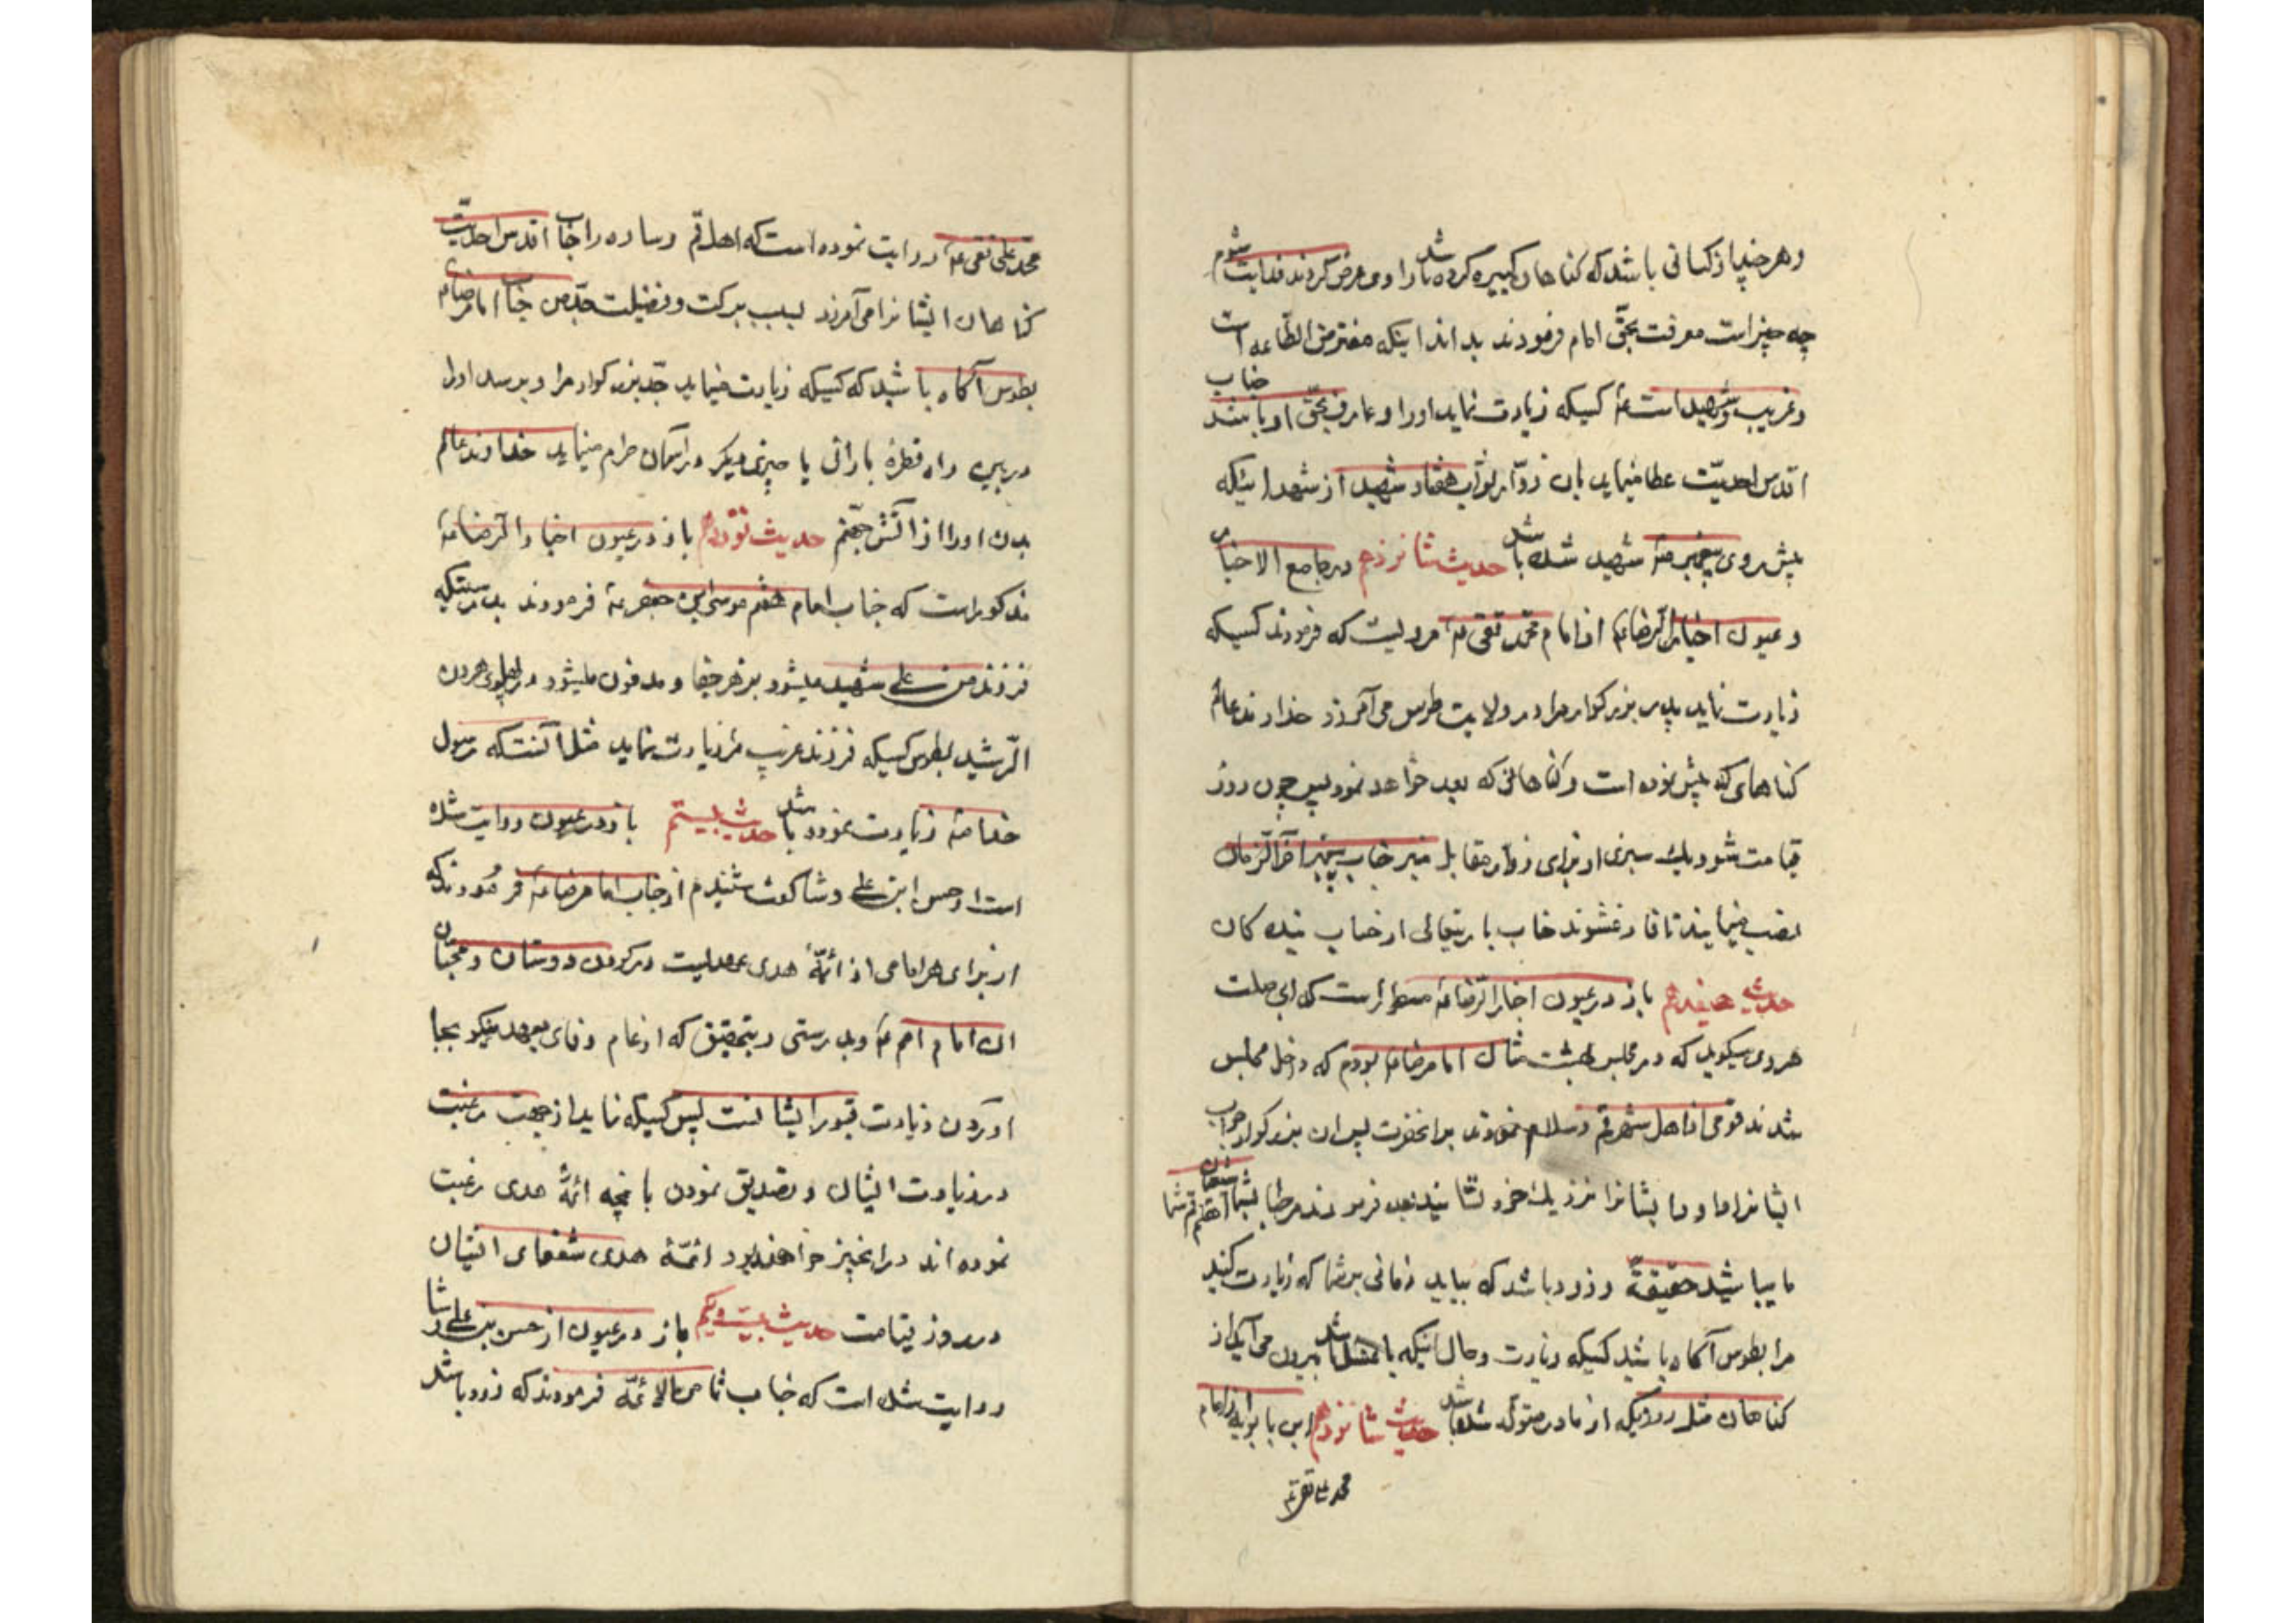 و هر چند از کسانی باشد که کناهان کبیره کرده باشد راوی عرض کردند فدایت شوم
چه چیز است معرفت بحق امام فرمودند بداند اینکه مفترض الطاعه است
و غریب و شهید است کسیکه زیارت نماید او را و عارف بحق او باشد جناب
اقدس احدیّت عطا مینماید بان زوّار ثواب هفتاد شهید از شهدا اینکه
پیش روی پیغمبر شهید شده باشد حدیث شانزدهم در جامع الاخبار
و عیون اخبار الرضا از امام محمد تقی مرویست که فرمودند کسیکه
زیارت نماید پدر بزرکوار مرا در ولایت طوس می آمرزد خداوند عالم
کناهای که پیش نموده است و کناهانی که بعد خواهد نمود پس چون روز
قیامت شود یک منبری از برای زوّار مقابل منبر جناب پیغمبر آخر الزمان
نصب مینمایند تا فارغ شوند جناب باریتعالی از حساب بنده کان
حدیث هفدهم باز در عیون اخبار الرضا مسطور است که ابی صلت
هروی میکوید که در مجلس بهشت مثال امام رضا بودم که داخل مجلس
شدند قومی از اهل شهر قم و سلام نمودند بر انحضرت پس ان بزرکوار جواب
ایشانرا داد و ایشانرا نزدیک خود نشانید بعد فرمودند مرحبا بشما اهل قم شما شیعیان
ما میباشید حقیقةً و زود باشد که بیاید زمانی بر شما که زیارت کنید
مرا بطوس آکاه باشید کسیکه زیارت و حال انیکه با غسل باشد بیرون می آید از
کناهان مثل روزیکه از مادر متولد شده باشد حدیث شانزدهم ابن بابویه از امام
محمد علی نقی
محمد علی نقی روایت نموده است که اهل قم و ساوه را جناب اقدس احدیّت
کناهان ایشانرا می آمرزد بسبب برکت و فضیلت جدّ من جناب امام رضا
بطوس آکاه باشید که کسیکه زیارت مینماید جدّ بزرکوار مرا و برسد او را
در بین راه قطرهٔ بارانی یا چیزی دیکر در آسمان حرام مینماید خداوند عالم
بدن او را از آتش جهنم حدیث نوزدهم باز در عیون اخبار الرضا
مذکور است که جناب امام هفتم موسی ابن جعفر فرمودند بدرستیکه
فرزند من علی شهید میشود بزهر جفا و مدفون میشود در پهلوی هرون
الرشید بطوس کسیکه فرزند غریب مرا زیارت نماید مثل آنست که رسول
خدا زیارت نموده باشد حدیث بیستم باز در عیون روایت شده
است از حسن ابن علی وشا کفت شنیدم از جناب امام رضا فرمودند که
از برای هر امامی از ائمّهٔ هدی عهدیست در کردن دوستان و محبان
ان امام امم و بدرستی و بتحقیق که از تمام وفای بعهد نیکو بجا
اوردن زیارت قبور ایشانست پس کسیکه نماید از جهت رغبت
در زیارت ایشان و تصدیق نمودن بانچه ائمّهٔ هدی رغبت
نموده اند در انچیز خواهند بود ائمّهٔ هدی شفعای ایشان
در روز قیامت حدیث بیست و یکم باز در عیون از حسن بن علی وشا
روایت شده است که جناب ثامن الائمّه فرمودند که زود باشد